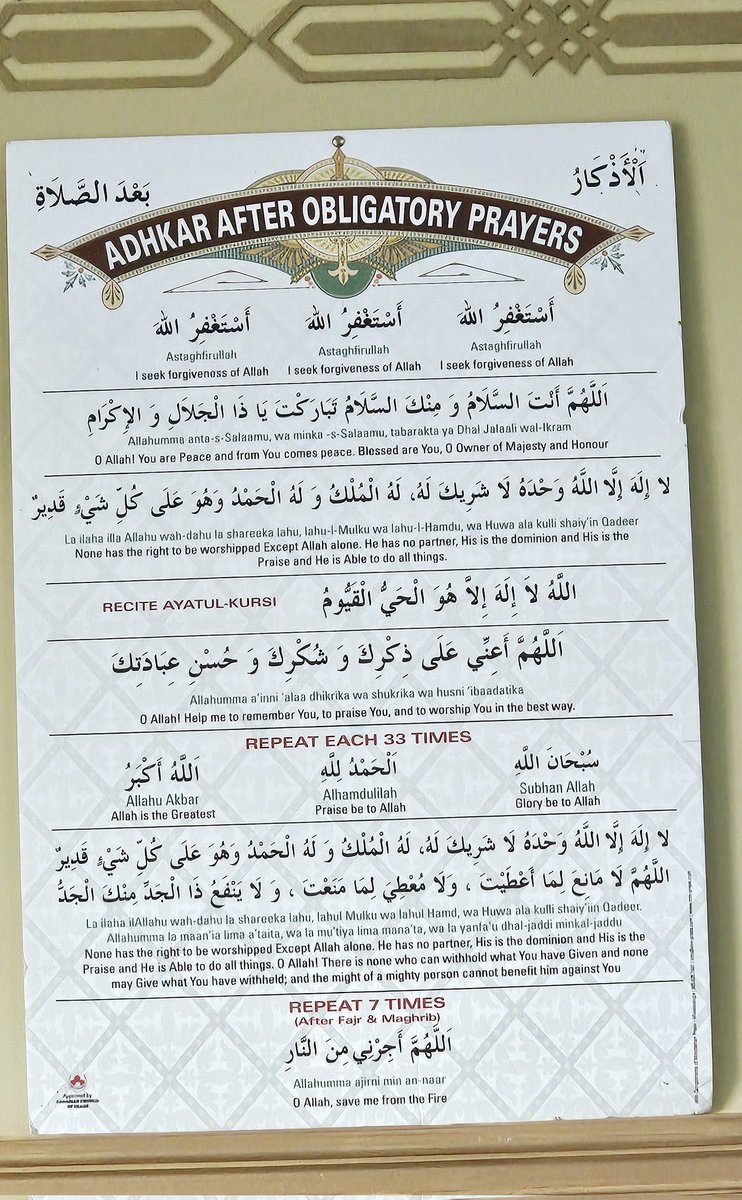 اَلْأَذْكَارُ بَعْدَ الصَّلَاةِ
ADHKAR AFTER OBLIGATORY PRAYERS
أَسْتَغْفِرُ اللهَ أَسْتَغْفِرُ اللهَ أَسْتَغْفِرُ اللهَ
Astaghfirullah Astaghfirullah Astaghfirullah
I seek forgiveness of Allah I seek forgiveness of Allah I seek forgiveness of Allah
اَللَّهُمَّ أَنْتَ السَّلَامُ وَ مِنْكَ السَّلَامُ تَبَارَكْتَ يَا ذَا الْجَلَالِ وَ الإِكْرَامِ
Allahumma anta-s-Salaamu, wa minka -s-Salaamu, tabarakta ya Dhal Jalaali wal-Ikram
O Allah! You are Peace and from You comes peace. Blessed are You, O Owner of Majesty and Honour
لا إِلَهَ إِلَّا اللَّهُ وَحْدَهُ لَا شَرِيكَ لَهُ، لَهُ الْمُلْكُ وَ لَهُ الْحَمْدُ وَهُوَ عَلَى كُلِّ شَيْءٍ قَدِيرٌ
La ilaha illa Allahu wah-dahu la shareeka lahu, lahu-l-Mulku wa lahu-l-Hamdu, wa Huwa ala kulli shaiy'in Qadeer
None has the right to be worshipped Except Allah alone. He has no partner, His is the dominion and His is the
Praise and He is Able to do all things.
RECITE AYATUL-KURSI اللَّهُ لاَ إِلَهَ إِلاَّ هُوَ الْحَيُّ الْقَيُّومُ
اَللَّهُمَّ أَعِنِّي عَلَى ذِكْرِكَ وَ شُكْرِكَ وَ حُسْنِ عِبَادَتِكَ
Allahumma a'inni 'alaa dhikrika wa shukrika wa husni 'ibaadatika
O Allah! Help me to remember You, to praise You, and to worship You in the best way.
REPEAT EACH 33 TIMES
سُبْحَانَ اللَّهِ اَلْحَمْدُ لِلَّهِ اَللَّهُ أَكْبَرُ
Allahu Akbar Alhamdulilah Subhan Allah
Allah is the Greatest Praise be to Allah Glory be to Allah
لا إِلَهَ إِلَّا اللَّهُ وَحْدَهُ لَا شَرِيكَ لَهُ، لَهُ الْمُلْكُ وَ لَهُ الْحَمْدُ وَهُوَ عَلَى كُلِّ شَيْءٍ قَدِيرٌ
اللَّهُمَّ لَا مَانِعَ لِمَا أَعْطَيْتَ ، وَلَا مُعْطِيَ لِمَا مَنَعْتَ ، وَ لَا يَنْفَعُ ذَا الْجَدِّ مِنْكَ الْجَدُّ
La ilaha ilAllahu wah-dahu la shareeka lahu, lahul Mulku wa lahul Hamd, wa Huwa ala kulli shaiy'iin Qadeer.
Allahumma la maan'ia lima a'taita, wa la mu'tiya lima mana'ta, wa la yanfa'u dhal-jaddi minkal-jaddu
None has the right to be worshipped Except Allah alone. He has no partner, His is the dominion and His is the
Praise and He is Able to do all things. O Allah! There is none who can withhold what You have Given and none
may Give what You have withheld; and the might of a mighty person cannot benefit him against You
REPEAT 7 TIMES
(After Fajr & Maghrib)
اَللَّهُمَّ أَجِرْنِي مِنَ النَّارِ
Allahumma ajirni min an-naar
O Allah, save me from the Fire
Approved by